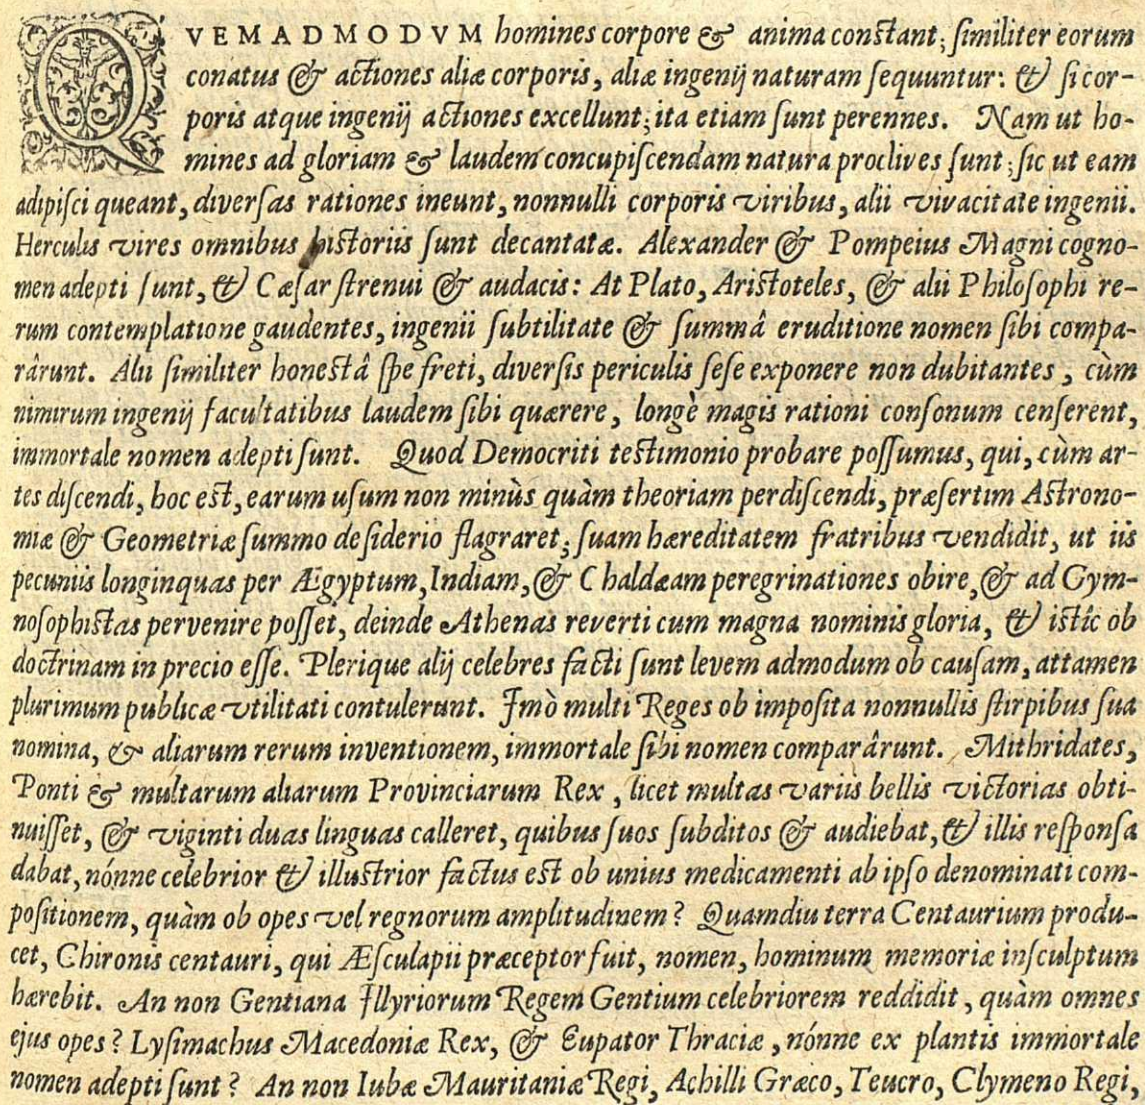 QVEMADMODVM homines corpore & anima constant; similiter eorum
conatus & actiones aliæ corporis, aliæ ingenij naturam sequuntur: & si cor-
poris atque ingenij actiones excellunt; ita etiam sunt perennes. Nam ut ho-
mines ad gloriam & laudem concupiscendam natura proclives sunt; sic ut eam
adipisci queant, diversas rationes ineunt, nonnulli corporis viribus, alii vivacitate ingenii.
Herculis vires omnibus historiis sunt decantatæ. Alexander & Pompeius Magni cogno-
men adepti sunt, & Cæsar strenui & audacis: At Plato, Aristoteles, & alii Philosophi re-
rum contemplatione gaudentes, ingenii subtilitate & summâ eruditione nomen sibi compa-
rârunt. Alii similiter honestâ spe freti, diversis periculis sese exponere non dubitantes, cùm
nimirum ingenij facultatibus laudem sibi quærere, longè magis rationi consonum censerent,
immortale nomen adepti sunt. Quod Democriti testimonio probare possumus, qui, cùm ar-
tes discendi, hoc est, earum usum non minùs quàm theoriam perdiscendi, præsertim Astrono-
miæ & Geometriæ summo desiderio flagraret; suam hæreditatem fratribus vendidit, ut iis
pecuniis longinquas per Ægyptum, Indiam, & Chaldæam peregrinationes obire, & ad Gym-
nosophistas pervenire posset, deinde Athenas reverti cum magna nominis gloria, & istîc ob
doctrinam in precio esse. Plerique alij celebres facti sunt levem admodum ob causam, attamen
plurimum publicæ vtilitati contulerunt. Imò multi Reges ob imposita nonnullis stirpibus sua
nomina, & aliarum rerum inventionem, immortale sibi nomen comparârunt. Mithridates,
Ponti & multarum aliarum Provinciarum Rex, licet multas variis bellis victorias obti-
nuisset, & viginti duas linguas calleret, quibus suos subditos & audiebat, & illis responsa
dabat, nónne celebrior & illustrior factus est ob unius medicamenti ab ipso denominati com-
positionem, quàm ob opes vel regnorum amplitudinem? Quamdiu terra Centaurium produ-
cet, Chironis centauri, qui Æsculapii præceptor fuit, nomen, hominum memoriæ insculptum
hærebit. An non Gentiana Illyriorum Regem Gentium celebriorem reddidit, quàm omnes
ejus opes? Lysimachus Macedoniæ Rex, & Eupator Thraciæ, nónne ex plantis immortale
nomen adepti sunt? An non Iubæ Mauritaniæ Regi, Achilli Græco, Teucro, Clymeno Regi,